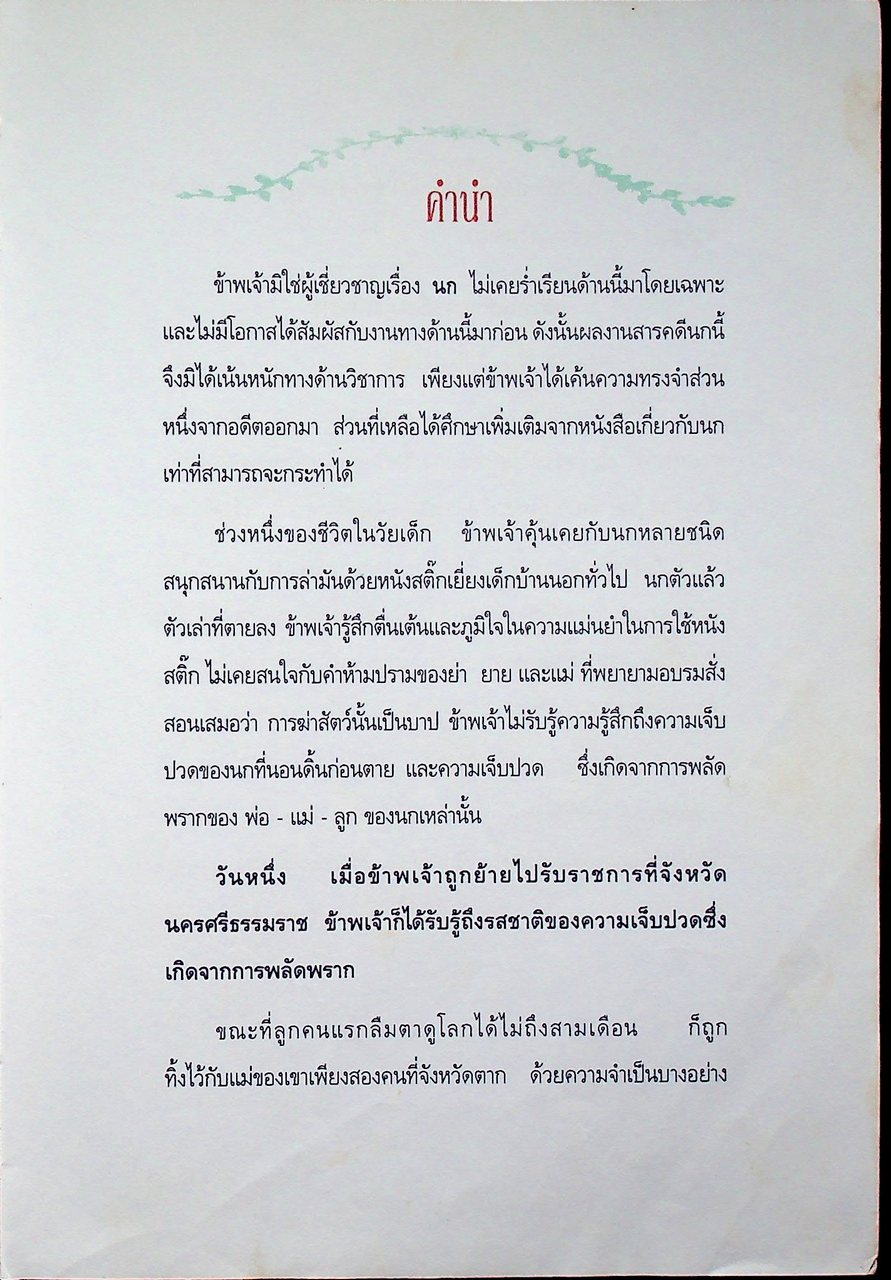 คำนำ
ข้าพเจ้ามิใช่ผู้เชี่ยวชาญเรื่อง นก ไม่เคยร่ำเรียนด้านนี้มาโดยเฉพาะ
และไม่มีโอกาสได้สัมผัสกับงานทางด้านนี้มาก่อน ดังนั้นผลงานสารคดีนกนี้
จึงมิได้เน้นหนักทางด้านวิชาการ เพียงแต่ข้าพเจ้าได้เค้นความทรงจำส่วน
หนึ่งจากอดีตออกมา ส่วนที่เหลือได้ศึกษาเพิ่มเติมจากหนังสือเกี่ยวกับนก
เท่าที่สามารถจะกระทำได้
ช่วงหนึ่งของชีวิตในวัยเด็ก ข้าพเจ้าคุ้นเคยกับนกหลายชนิด
สนุกสนานกับการล่ามันด้วยหนังสติ๊กเยี่ยงเด็กบ้านนอกทั่วไป นกตัวแล้ว
ตัวเล่าที่ตายลง ข้าพเจ้ารู้สึกตื่นเต้นและภูมิใจในความแม่นยำในการใช้หนัง
สติ๊ก ไม่เคยสนใจกับคำห้ามปรามของย่า ยาย และแม่ ที่พยายามอบรมสั่ง
สอนเสมอว่า การฆ่าสัตว์นั้นเป็นบาป ข้าพเจ้าไม่รับรู้ความรู้สึกถึงความเจ็บ
ปวดของนกที่นอนดิ้นก่อนตาย และความเจ็บปวด ซึ่งเกิดจากการพลัด
พรากของ พ่อ - แม่ - ลูก ของนกเหล่านั้น
วันหนึ่ง เมื่อข้าพเจ้าถูกย้ายไปรับราชการที่จังหวัด
นครศรีธรรมราช ข้าพเจ้าก็ได้รับรู้ถึงรสชาติของความเจ็บปวดซึ่ง
เกิดจากการพลัดพราก
ขณะที่ลูกคนแรกลืมตาดูโลกได้ไม่ถึงสามเดือน ก็ถูก
ทิ้งไว้กับแม่ของเขาเพียงสองคนที่จังหวัดตาก ด้วยความจำเป็นบางอย่าง